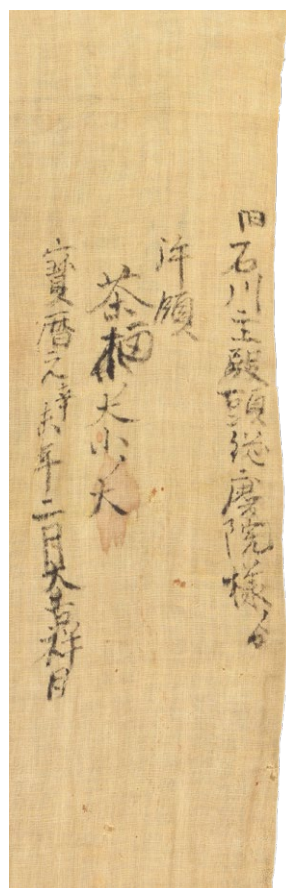 石川主殿頭総慶院様ゟ
拝領
茶大小ノ大
寶暦元辛未年二月大吉祥日